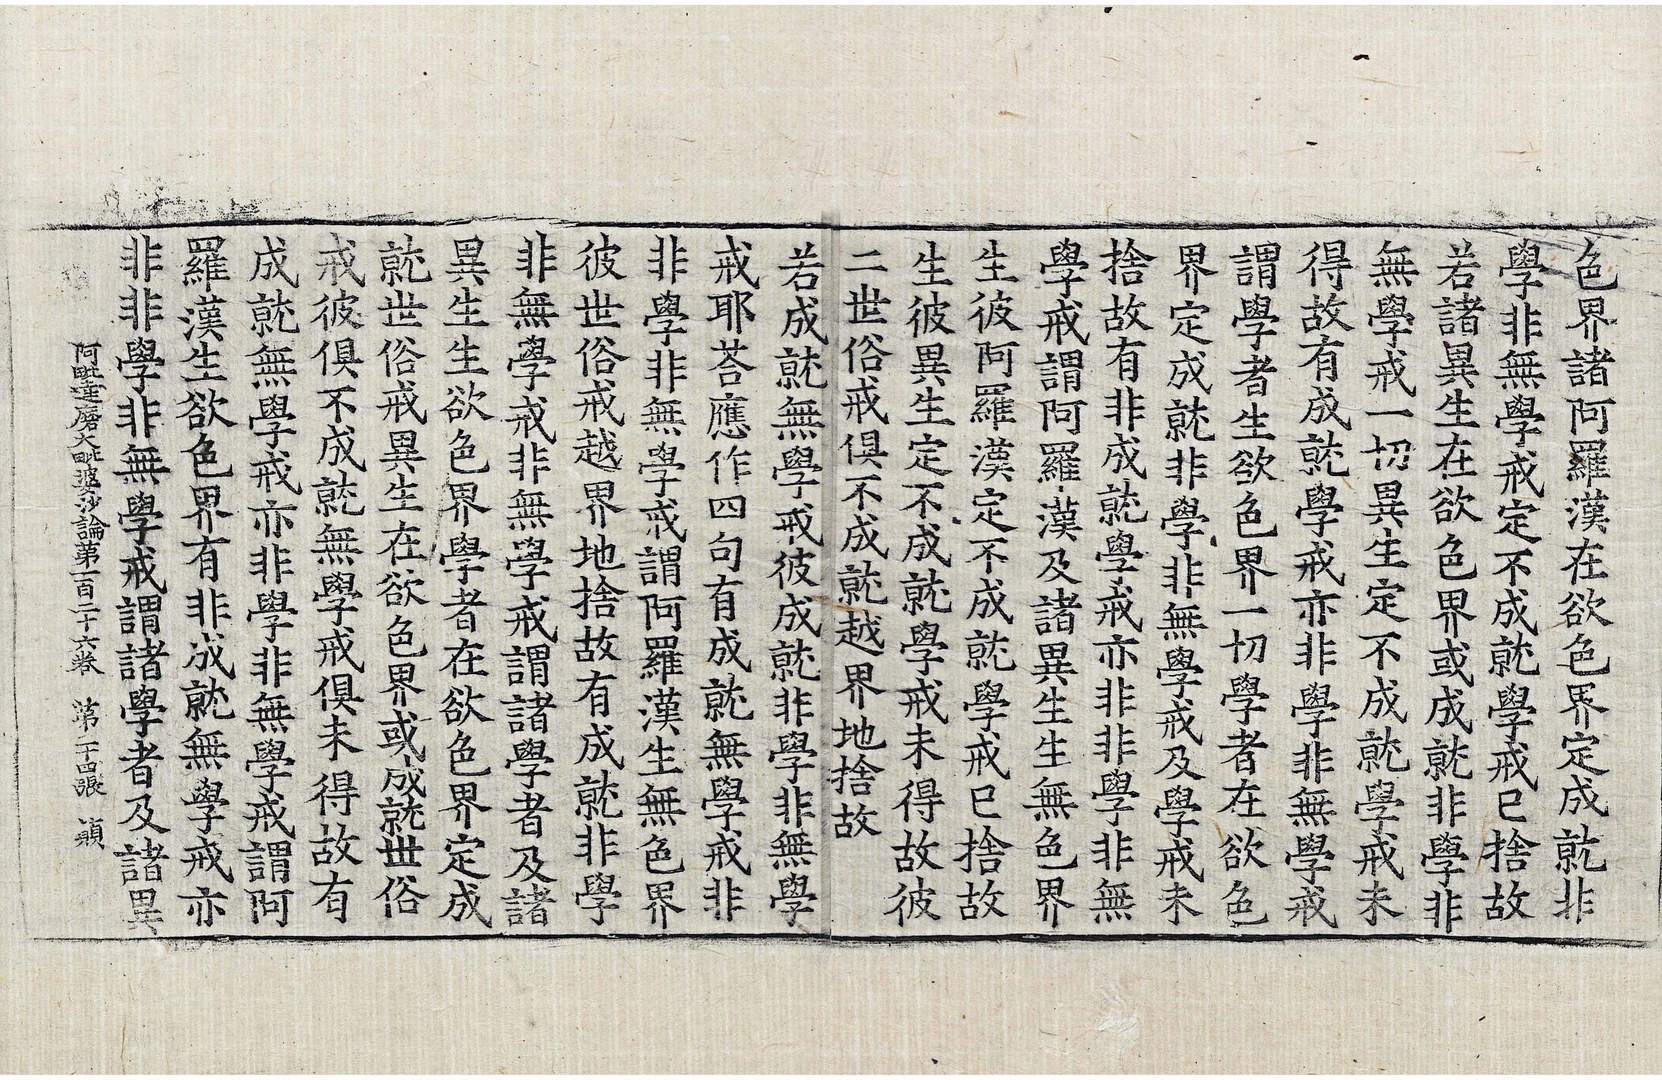 色界諸阿羅漢在欲色界定成就非
學非無學戒定不成就學戒已捨故
若諸異生在欲色界或成就非學非
無學戒一切異生定不成就學戒未
得故有成就學戒亦非學非無學戒
謂學者生欲色界一切學者在欲色
界定成就非學非無學戒及學戒未
捨故有非成就學戒亦非非學非無
學戒謂阿羅漢及諸異生生無色界
生彼阿羅漢定不成就學戒已捨故
生彼異生定不成就學戒未得故彼
二世俗戒俱不成就越界地捨故
若成就無學戒彼成就非學非無學
戒耶荅應作四句有成就無學戒非
非學非無學戒謂阿羅漢生無色界
彼世俗戒越界地捨故有成就非學
非無學戒非無學戒謂諸學者及諸
異生生欲色界學者在欲色界定成
就世俗戒異生在欲色界或成就世俗
戒彼俱不成就無學戒俱未得故有
成就無學戒亦非學非無學戒謂阿
羅漢生欲色界有非成就無學戒亦
非非學非無學戒謂諸學者及諸異
阿毗達磨大毗婆沙論第一百二十六卷 第二十四張 穎